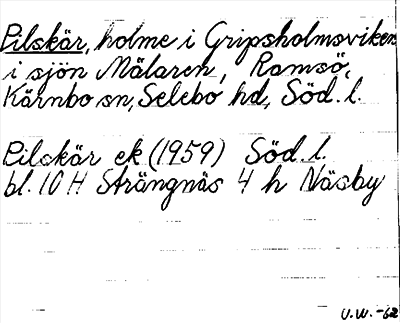 Pilskär, holme i Gripsholmsviken
i sjön Mälaren, Ramsö,
Kärnbo sn, Selebo hd, Söd. l.
Pilskär ek (1959) Söd. l.
bl. 10 H Strängnäs 4 h Näsby
U.W. -62